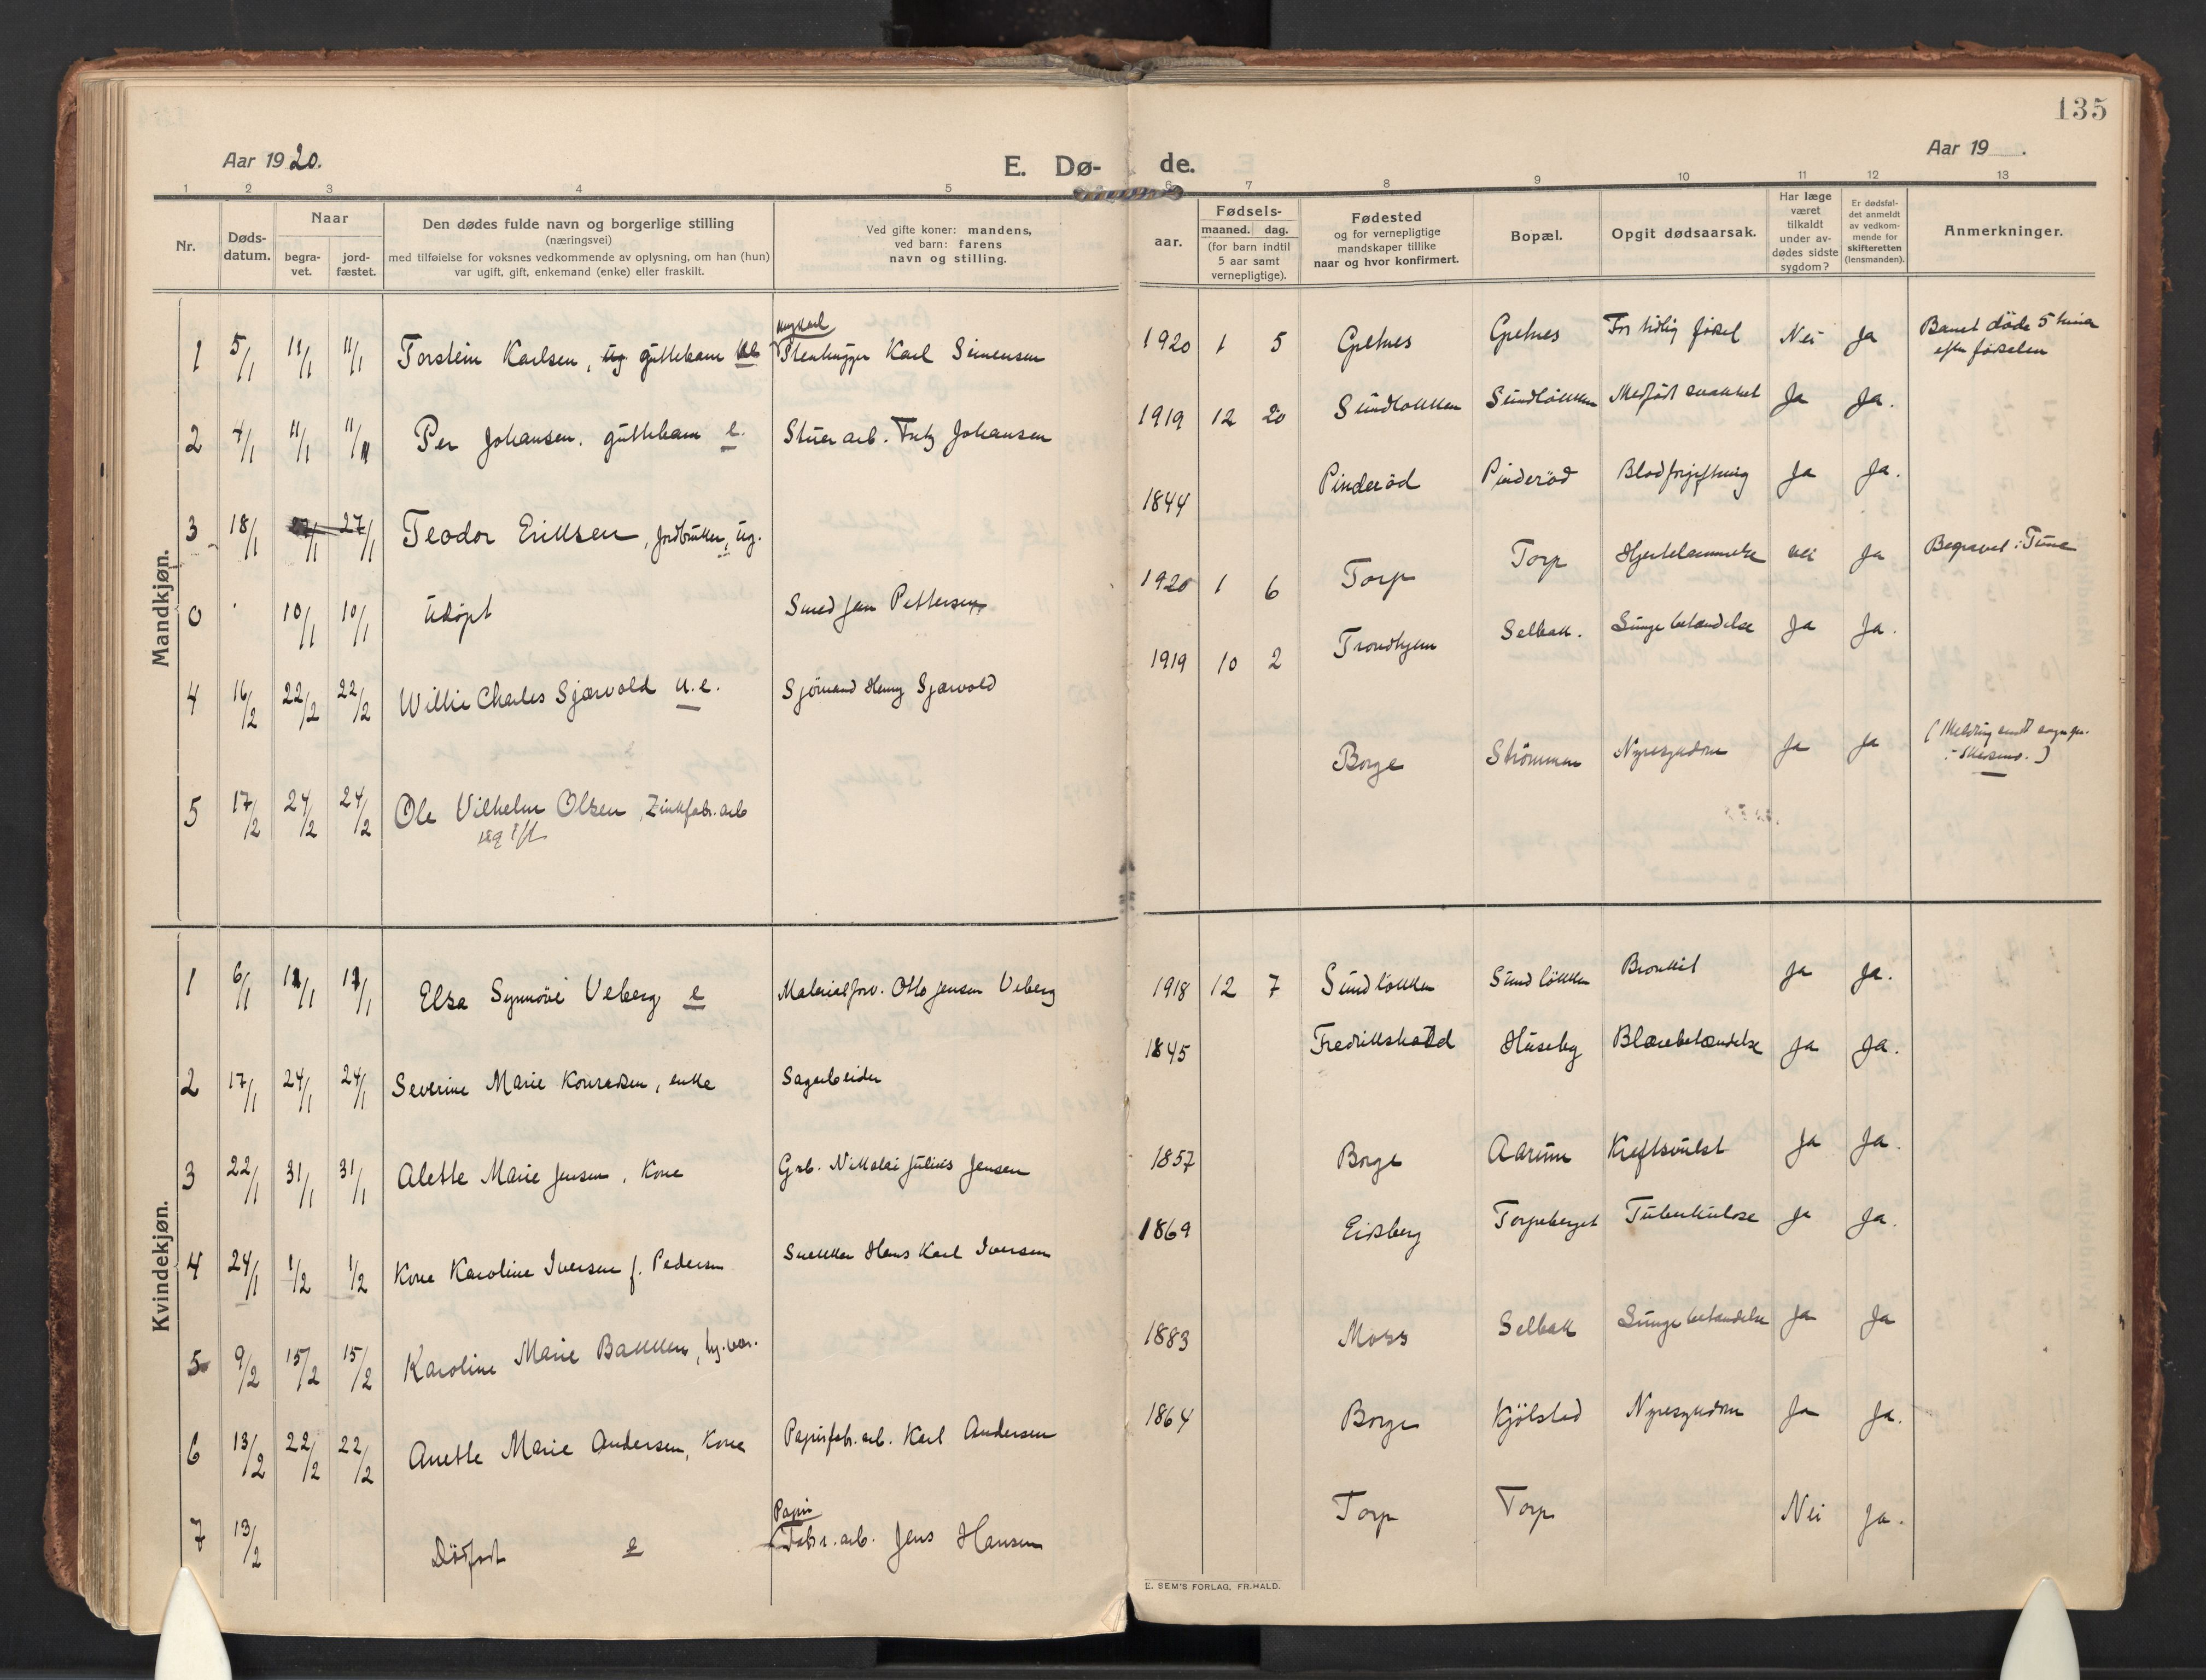 135
Aar 1920.
E. Dø-
de.
Aar 19 .
1 2 3 4 5 6 7 8 9 10 11 12 13
Nr.
Døds-
datum.
Naar
begra-
vet.
jord-
fæstet.
Den dødes fulde navn og borgerlige stilling
(næringsvei)
med tilføielse for voksnes vedkommende av oplysning, om han (hun)
var ugift, gift, enkemand (enke) eller fraskilt.
Ved gifte koner: mandens,
ved barn: farens
navn og stilling.
aar.
Fødsels-
maaned. dag.
(for barn indtil
5 aar samt
vernepligtige).
Fødested
og for vernepligtige
mandskaper tillike
naar og hvor konfirmert.
Bopæl.
Opgit dødsaarsak.
Har læge
været
tilkaldt
under av-
dødes sidste
sygdom?
Er dødsfal-
det anmeldt
av vedkom-
mende for
skifteretten
(lensmanden).
Anmerkninger.
Mandkjøn.
1 5/1 11/1 11/1 Torstein Karlsen, guttebarn Stenhugger Karl Simensen 1920 1 5 Gretnes Gretnes For tidlig födsel Nei Ja Barnet döde 5 timer
efter födselen
2 4/1 11/1 11/1 Per Johansen, guttebarn e. Stuerarb. Fritz Johansen 1919 12 20 Sundlökken Sundlökken Medfödt svakhet Ja Ja.
3 18/1 27/1 27/1 Teodor Eriksen, jordbruker, ug. 1844 Pinderöd Pinderöd Blodforgiftning Ja Ja.
0 10/1 10/1 Udøpt Smed Jan Pettersen 1920 1 6 Torp Torp Hjertelammelse nei Ja Begravet i Tune
4 16/2 22/2 22/2 Willie Charles Sjærvold u.e. Sjømand Henry Sjærvold 1919 10 2 Trondhjem Selbak. Lungebetændelse Ja Ja.
5 17/2 24/2 24/2 Ole Vilhelm Olsen, Zinkfabr. arb Borge Strömmen Nyresykdom Ja Ja (Melding sendt sogepr.
i Skedsmo.)
Kvindekjøn.
1 6/1 11/1 11/1 Elsa Synnöve Veberg e Materialforv. Otto Jensen Veberg 1918 12 7 Sundlökken Sundlökken Bronkit Ja Ja.
2 17/1 24/1 24/1 Severine Marie Konradsen, enke Sagarbeider 1845 Fredrikshald Huseby Blærebetændelse Ja Ja.
3 22/1 31/1 31/1 Alette Marie Jensen, Kone Grb. Nikolai Julius Jensen 1857 Borge Aarum Kreftsvulst Ja Ja.
4 24/1 1/2 1/2 Kone Karoline Iversen f. Pedersen Snekker Hans Karl Iversen 1869 Eidsberg Torpeberget Tuberkulose Ja Ja.
5 9/2 15/2 15/2 Karoline Marie Bakken, 1883 Moss Selbak Lungebetændelse Ja Ja
6 13/2 22/2 22/2 Anette Marie Andersen, Kone Papirfabr. arb. Karl Andersen 1864 Borge Kjölsted Nyresykdom Ja Ja.
Papir
7 13/2 Dödfödt e Fabr. arb. Jens Hansen Torp Torp Nei Ja.
E. SEM'S FORLAG, FR.HALD.